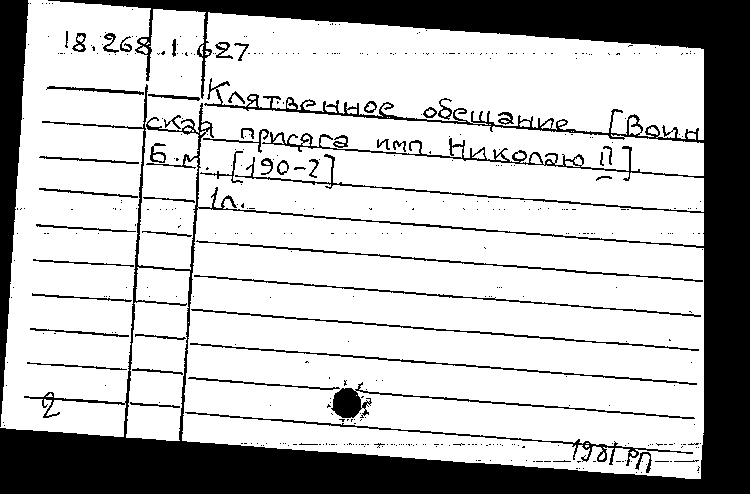 18.268.1.627
Клятвенное обещание [Воин
ская присяга имп. Николаю II].
Б.м., [190-?].
1л.
2
1981 РП